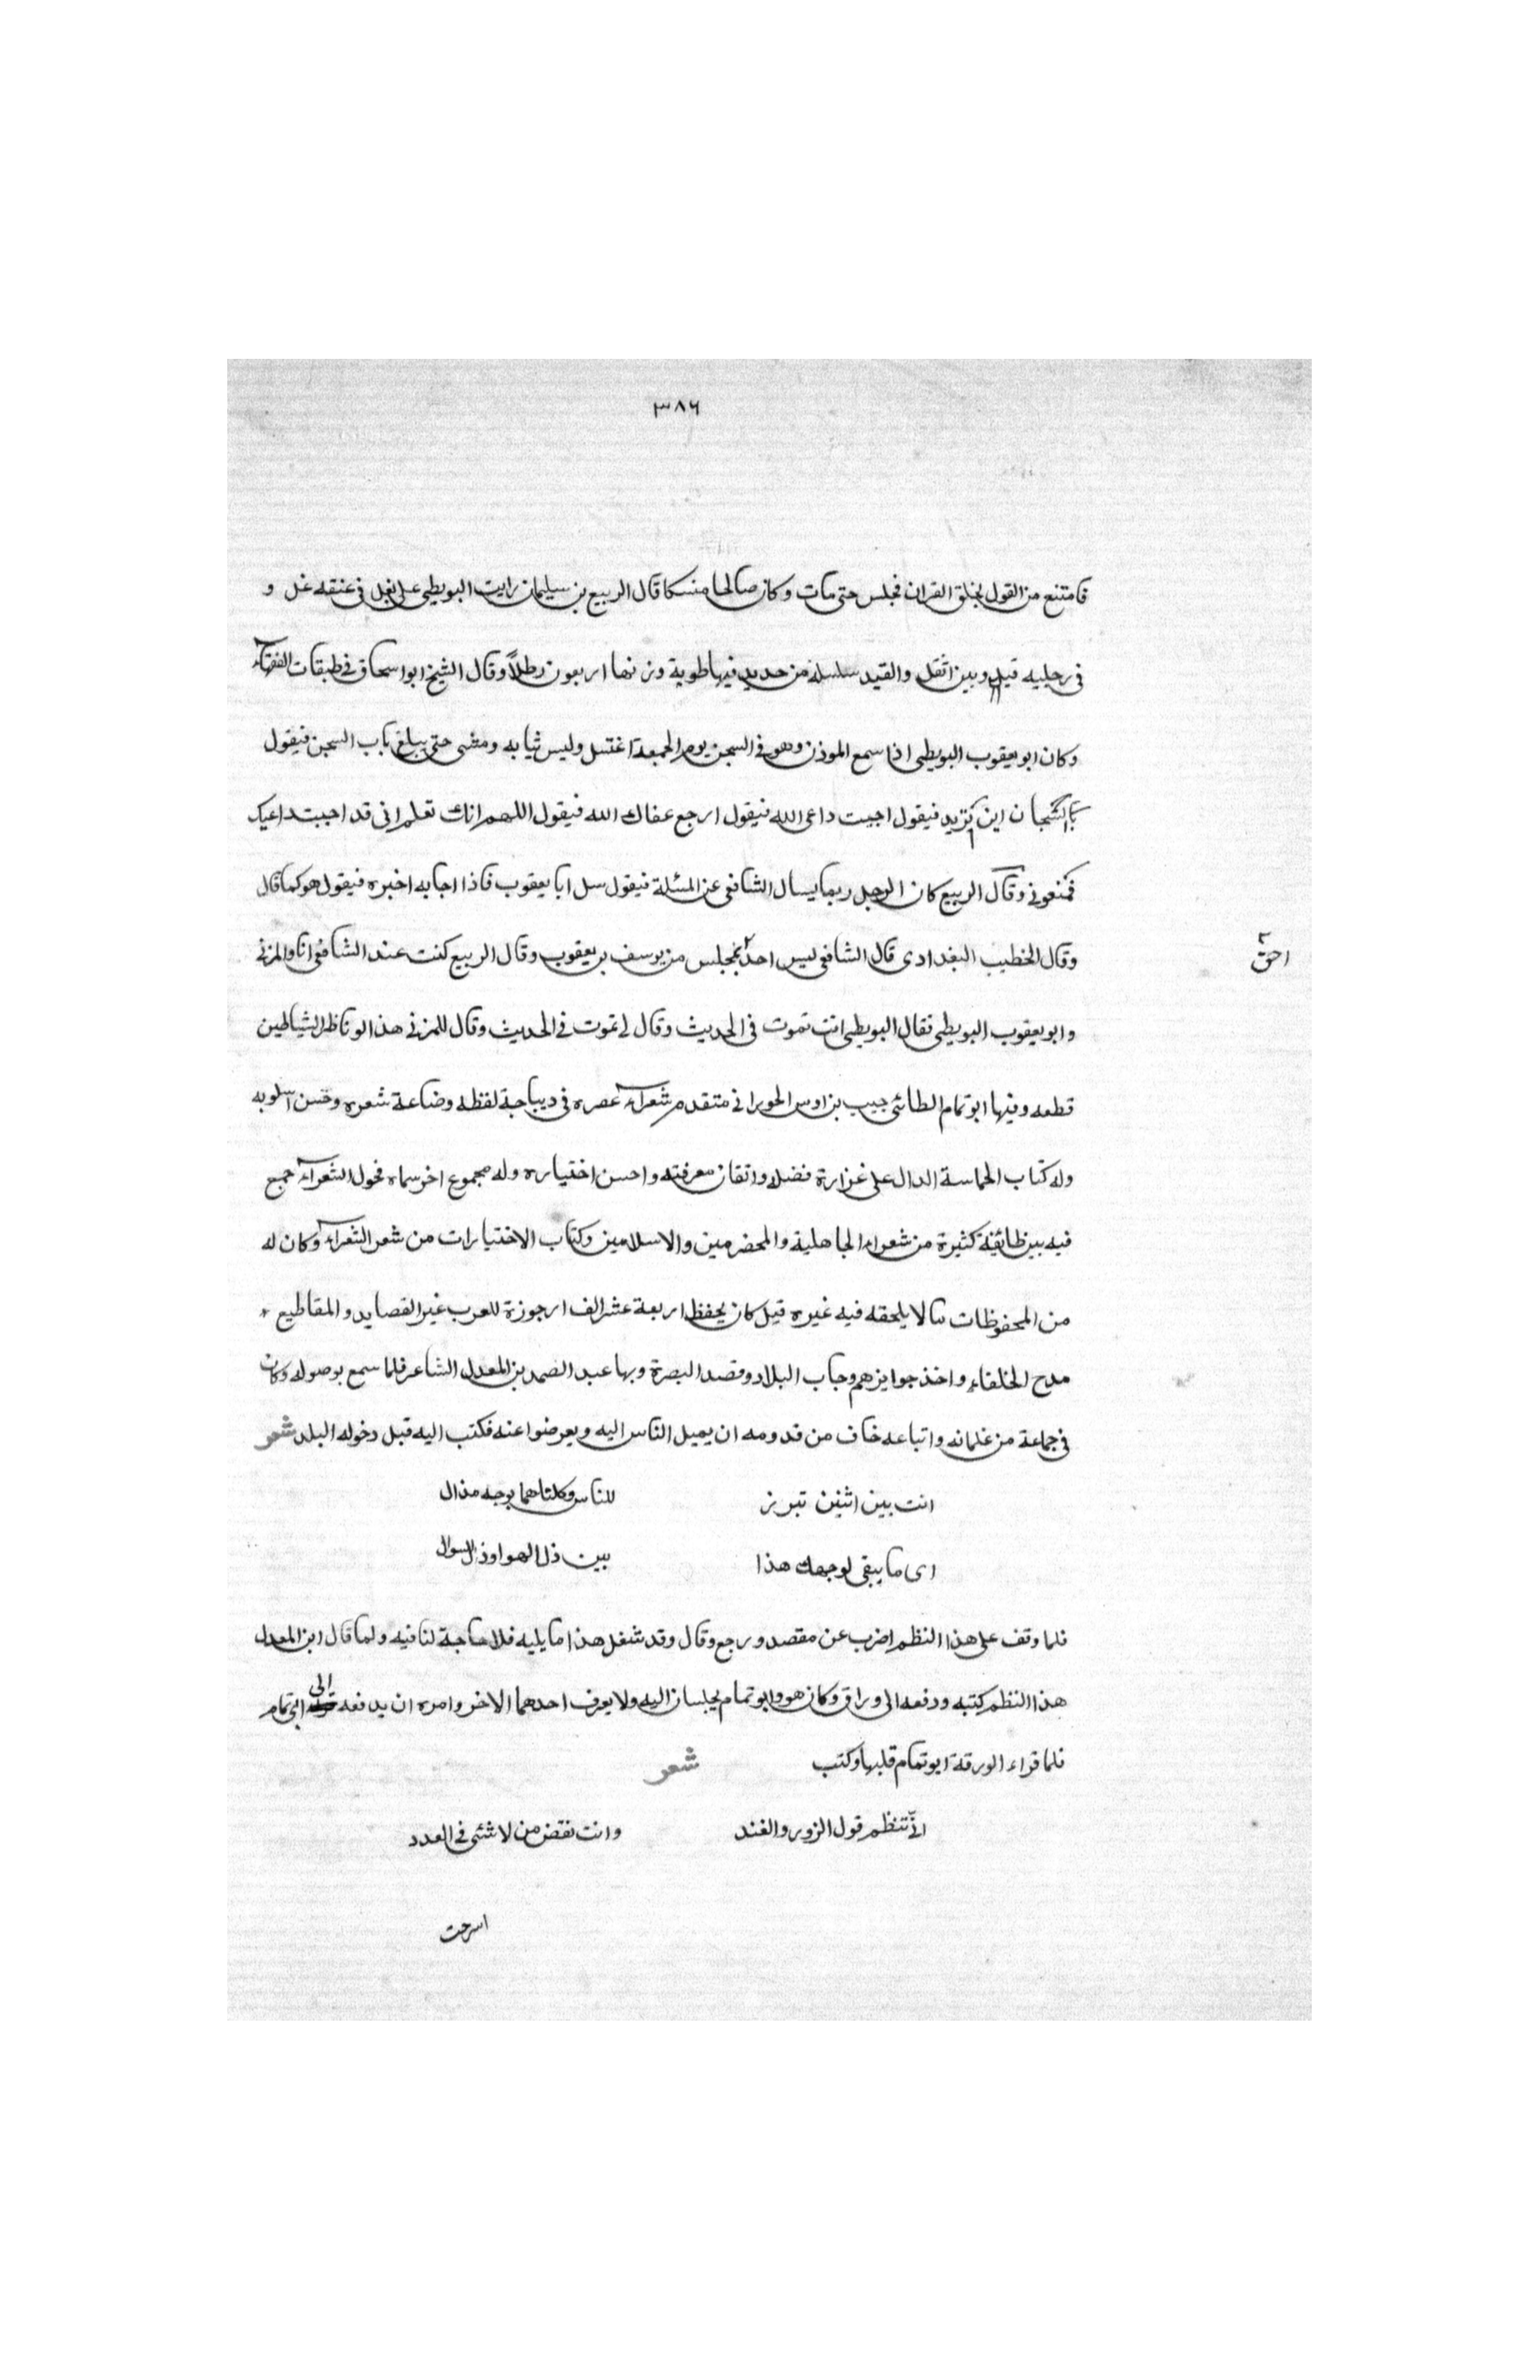 ٣٨٦
فامتنع من القول بخلق القران فجلس حتى مات وكان صالحا منسكا قال الربيع بن سليمان رايت البويطى على بغل فى عنقه غل و
فى رجليه قيل وبين اثقل والقيد سلسلة من حديد فيها طوبة وزنها اربعون رطلاً وقال الشيخ ابو اسحاق فى طبقات الفقهاء
وكان ابو يعقوب البويطى اذا سمع الموذن وهو فى السجن يوم الجمعة اغتسل ولبس ثيابه ومشى حتى يبلغ باب السجن فيقول
السجان اين تريد فيقول اجيب داعى الله فيقول ارجع عفاك الله فيقول اللهم انك تعلم انى قد اجبت داعيك
فمنعونى وقال الربيع كان الرجل ربما يسال الشافعى عن المسئلة فيقول سل ابا يعقوب فاذا اجابه اخبره فيقول هو كما قال
وقال الخطيب البغدادى قال الشافعى ليس احد بمجلس من يوسف بن يعقوب وقال الربيع كنت عند الشافعى انا والمزنى
احق
وابو يعقوب البويطى فقال البويطى انت تموت فى الحديث وقال لى تموت فى الحديث وقال للمزنى هذا لو ناظر الشياطين
قطعه وفيها ابو تمام الطائى حبيب بن اوس الحورانى متقدم شعراء عصره فى ديباجة لفظه وضاعة شعره وحسن اسلوبه
وله كتاب الحماسة الدال على غزارة فضله واتقان معرفته واحسن اختياره وله مجموع اخر سماه فحول الشعراء جمع
فيه بين طائفة كثيرة من شعراء الجاهلية والمخضرمين والاسلامين وكتاب الاختيارات من شعر الشعراء وكان له
من المحفوظات ما لا يلحقه فيه غيره قيل كان يحفظ اربعة عشر الف ارجوزة للعرب غير القصايد والمقاطيع
مدح الخلفاء واخذ جوايزهم وجاب البلاد وقصد البصرة وبها عبد الصمد بن المعدل الشاعر فلما سمع بوصوله وكان
فى جماعة من غلمانه واتباعه خاف من قدومه ان يميل الناس اليه ويعرضوا عنه فكتب اليه قبل دخوله البلد شعر
انت بين اثنين تبرز للناس وكلتاهما بوجه مذال
اى ما يبقى لوجهك هذا بين ذل الهوا وذل السوال
فلما وقف على هذا النظم اضرب عن مقصد ورجع وقال وقد شغل هذا ما يليه فلا حاجة لنا فيه ولما قال ابن المعدل
هذا النظم كتبه ودفعه الى وراق وكان هو وابو تمام يجلسان اليه ولا يعرف احدهما الاخر وامره ان يدفعه الى ابى تمام
فلما قراء الورقة ابو تمام قلبها وكتب شعر
انى تنظم قول الزور والفند وانت نقض من لا شئى فى العدد
اسرحت